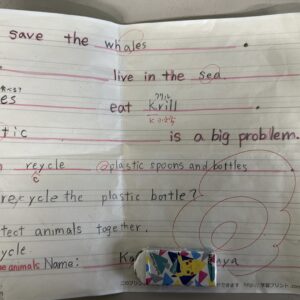 save the whales .
live in the sea.
食べる?
es eat krill .
クリル
tic is a big problem.
recycle @plastic spoons and bottles
c
recycle the plastic bottle?
tect animals together.
ycle.
animals Name: Ka aya
学習プリント